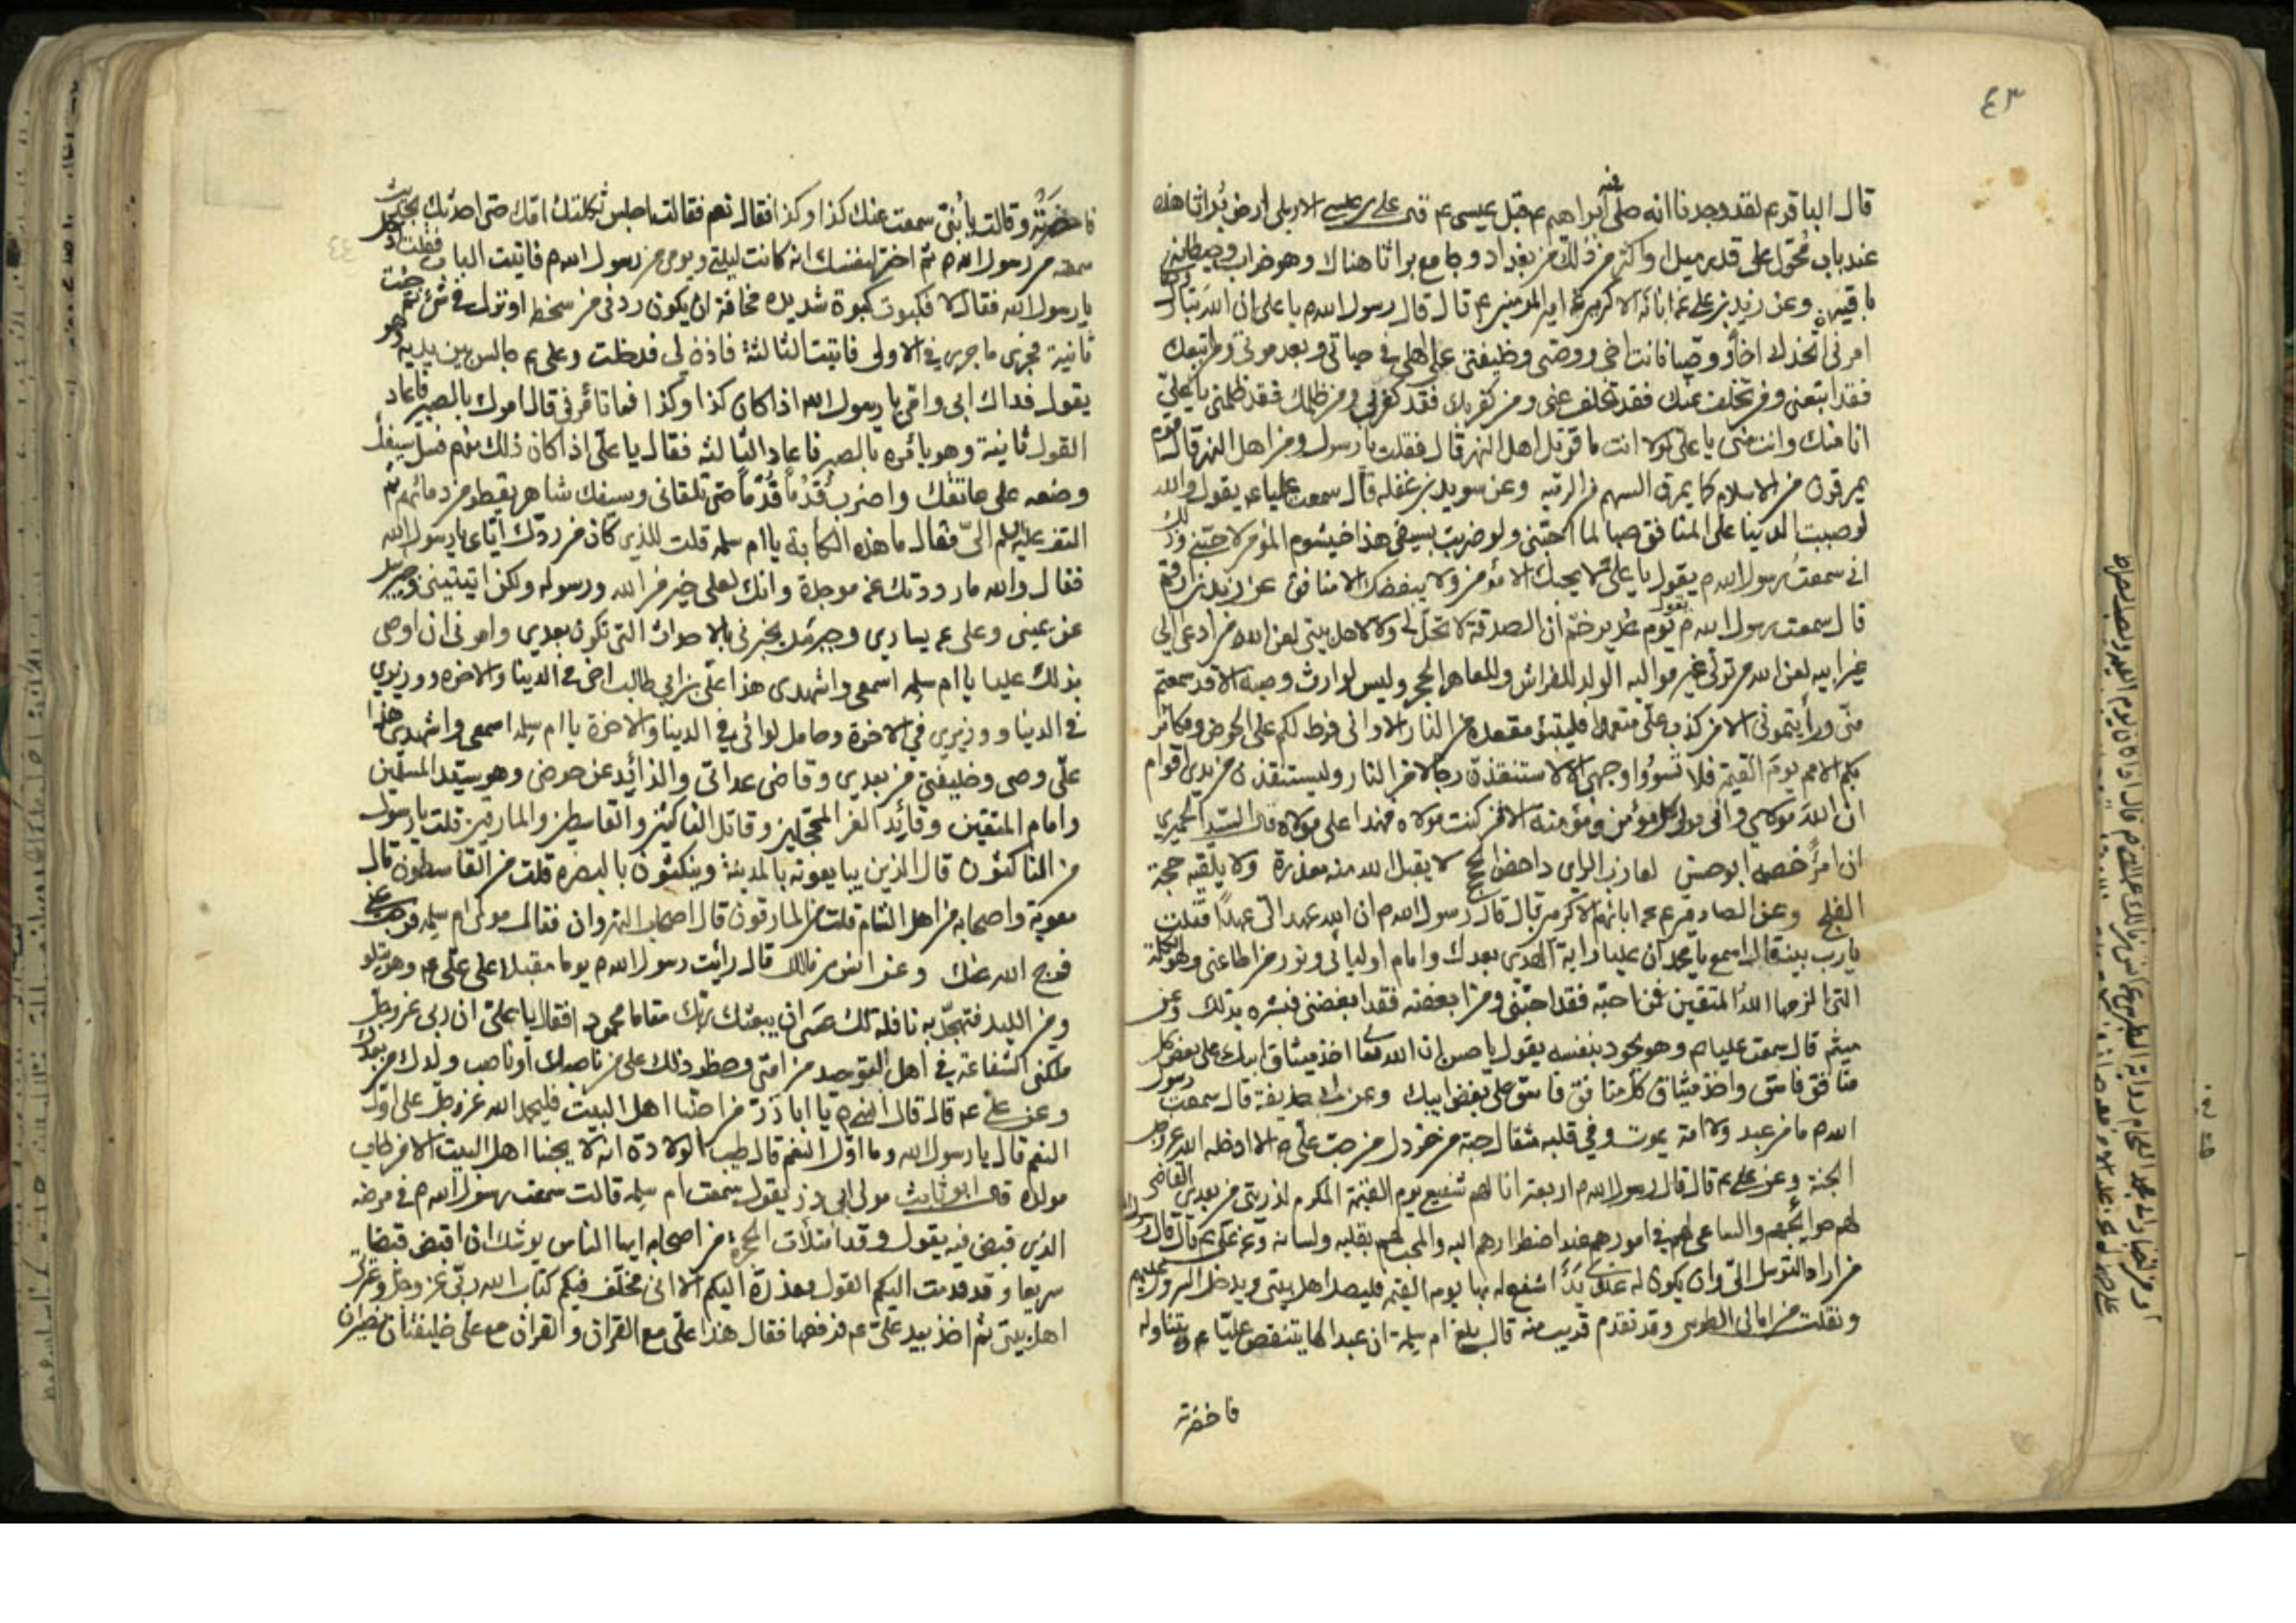 ٤٣
قال الباقر ع لقد وجدنا انه صلى فيه ابراهيم ع قبل عيسى ع قال علي بن عيسى الاربلي ارض براثا هذه
عند باب محول على قدر ميل او اكثر من ذلك من بغداد وجامع براثا هنالك وهو خراب وحيطانه
باقية وعن زيد بن علي عن ابائه الاكرمين عن امير المؤمنين ع قال قال رسول الله ص يا علي ان الله تبارك
امرني ان اتخذك اخا ووصيا فانت اخي ووصيي وخليفتي على اهلي في حياتي وبعد موتي من اتبعك
فقد اتبعني ومن تخلف عنك فقد تخلف عني ومن كفر بك فقد كفر بي ومن ظلمك فقد ظلمني يا علي
انا منك وانت مني يا علي لولا انت ما قوتل اهل النهر قال فقلت يا رسول ومن اهل النهر قال قوم
يمرقون من الاسلام كما يمرق السهم من الرمية وعن سويد بن غفله قال سمعت عليا ع يقول والله
لو صببت الدنيا على المنافق صبا لما احبني ولو ضربت بسيفي هذا خيشوم المؤمن لاحبني وذلك
اني سمعت رسول الله ص يقول يا علي لا يحبك الا مؤمن ولا يبغضك الا منافق عن زيد بن ارقم
قال سمعت رسول الله ص يقول يوم غدير خم ان الصدقة لا تحل لي ولا لاهل بيتي لعن الله من ادعى الى
غير ابيه لعن الله من تولى غير مواليه الولد للفراش وللعاهر الحجر وليس لوارث وصية الا قد سمعتم
مني ورأيتموني الا من كذب علي متعمدا فليتبوء مقعده من النار الا واني فرط لكم على الحوض ومكاثر
بكم الامم يوم القيمة فلا تسوؤا وجهي الا لاستنقذن رجالا من النار وليستنقذن من يدي اقوام
ان الله مولاي واني مولى كل مؤمن ومؤمنة الا من كنت مولاه فهذا علي مولاه قال السيد الحميري
ان امرأ خصمه ابو حسن لعازب الراي داحض الحجج لا يقبل الله منه معذرة ولا يلقيه حجة
الفلج وعن الصادق ع عن ابائهم الاكرمين قال قال رسول الله ص ان الله عهد الي عهدا فقلت
يا رب بينه قال اسمع يا محمد ان عليا راية الهدى بعدك وامام اوليائي ونور من اطاعني وهو الكلمة
التي الزمها الله المتقين فمن احبه فقد احبني ومن ابغضه فقد ابغضني فبشره بذلك وعن
ميثم قال سمعت عليا ع وهو يجود بنفسه يقول يا حسن ان الله تعالى اخذ ميثاق ابيك على بعض كل
منافق فاسق واخذ ميثاق كل منافق فاسق على بغض ابيك وعن ابي حذيفة قال سمعت رسول
الله ص ما من عبد ولا امة يموت وفي قلبه مثقال حبة من خردل من حب علي ع الا ادخله الله عز وجل
الجنة وعن علي ع قال قال رسول الله ص اربعة انا لهم شفيع يوم القيمة المكرم لذريتي من بعدي القاضي
لهم حوائجهم والساعي لهم في امورهم عند اضطرارهم اليه والمحب لهم بقلبه ولسانه وعن علي ع قال قال رسول الله
من اراد التوسل الي وان يكون له عندي يدا اشفع له بها يوم القيمة فليصل اهل بيتي ويدخل السرور عليهم
ونقلت من امالي الطوسي وقد تقدم قريب منه قال بلغ ام سلمة ان عبدا لها يتنقص عليا ع ويتناوله
فاحضرته
فاحضرته وقالت يا بني سمعت عنك كذا وكذا فقال نعم فقالت اجلس ثكلتك امك حتى احدثك بحديث
سمعته من رسول الله ص ثم اختر لنفسك انه كانت ليلتي ويومي من رسول الله ص فاتيت الباب فقلت ادخل
يا رسول الله فقال لا فكبوت كبوة شديدة مخافة ان يكون ردني من سخط او نزل في شئ ثم جئت
ثانية فجرى ما جرى في الاولى فاتيت الثالثة فاذن لي فدخلت وعلي ع جالس بين يديه وهو
يقول فداك ابي وامي يا رسول الله اذا كان كذا وكذا فما تأمرني قال امرك بالصبر فاعاد
القول ثانية وهو يأمره بالصبر فاعاد الثالثة فقال يا علي اذا كان ذلك منهم فسل سيفك
وضعه على عاتقك واضرب قدما قدما حتى تلقاني وسيفك شاهر يقطر من دمائهم ثم
التفت عليه السلم الي فقال ما هذه الكأبة يا ام سلمه قلت للذي كان من ردك اياي يا رسول الله
فقال والله ما رددتك عن موجدة وانك لعلى خير من الله ورسوله ولكن اتيتيني وجبرئيل
عن يميني وعلي ع يساري وجبرئيل يخبرني بالاحداث التي تكون بعدي وامرني ان اوصي
بذلك عليا يا ام سلمه اسمعي واشهدي هذا علي بن ابي طالب اخي في الدينا والاخره ووزيري
في الدينا ووزيري في الاخرة وحامل لوائي في الدينا والاخرة يا ام سلمه اسمعي واشهدي هذا
علي وصيي وخليفتي من بعدي وقاضي عداتي والذائد عن حوضي وهو سيد المسلمين
وامام المتقين وقائد الغر المحجلين وقاتل الناكثين والقاسطين والمارقين قلت يا رسول
من الناكثون قال الذين يبايعونه بالمدينة وينكثون بالبصره قلت من القاسطون قال
معوية واصحابه من اهل الشام قلت من المارقون قال اصحاب النهروان فقال مولى ام سلمه فرجت عني
فرج الله عنك وعن انس بن مالك قال رأيت رسول الله ص يوما مقبلا على علي ع وهو يتلو
ومن الليل فتهجد به نافلة لك عسى ان يبعثك ربك مقاما محمودا فقال يا علي ان ربي عز وجل
ملكني الشفاعة في اهل التوحيد من امتي وحظر ذلك على من ناصبك او ناصب ولدك من بعدك
وعن علي ع قال قال النبي ص يا ابا ذر من احبنا اهل البيت فليحمد الله عز وجل على اول
النعم قال يا رسول الله وما اول النعم قال طيب الولادة انه لا يحبنا اهل البيت الا من طاب
مولده قال ابو ثابت مولى ابي ذر يقول سمعت ام سلمه قالت سمعت رسول الله ص في مرضه
الذي قبض فيه يقول وقد امتلأت الحجرة من اصحابه ايها الناس يوشك ان اقبض قبضا
سريعا وقد قدمت اليكم القول معذرة اليكم الا اني مخلف فيكم كتاب الله ربي عز وجل وعترتي
اهل بيتي ثم اخذ بيد علي ع فرفعها فقال هذا علي مع القران والقران مع علي خليفتان نصيران